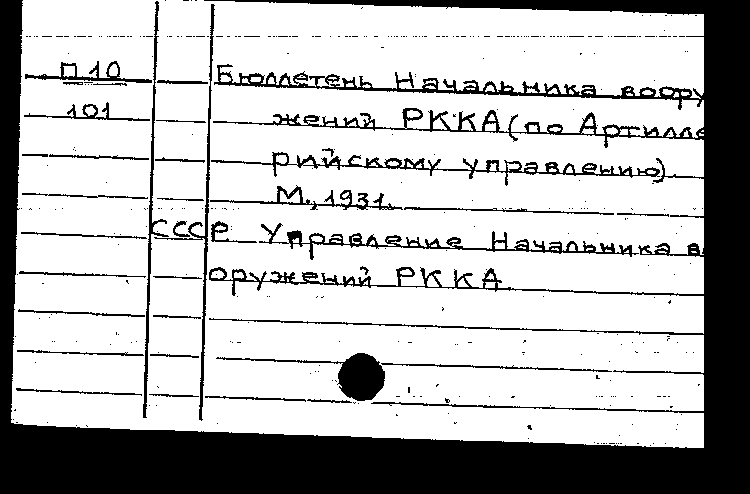 П 10 Бюллетень Начальника воору
101 жений РККА (по Артилле
рийскому управлению).
М., 1931.
СССР Управление Начальника во
оружений РККА.